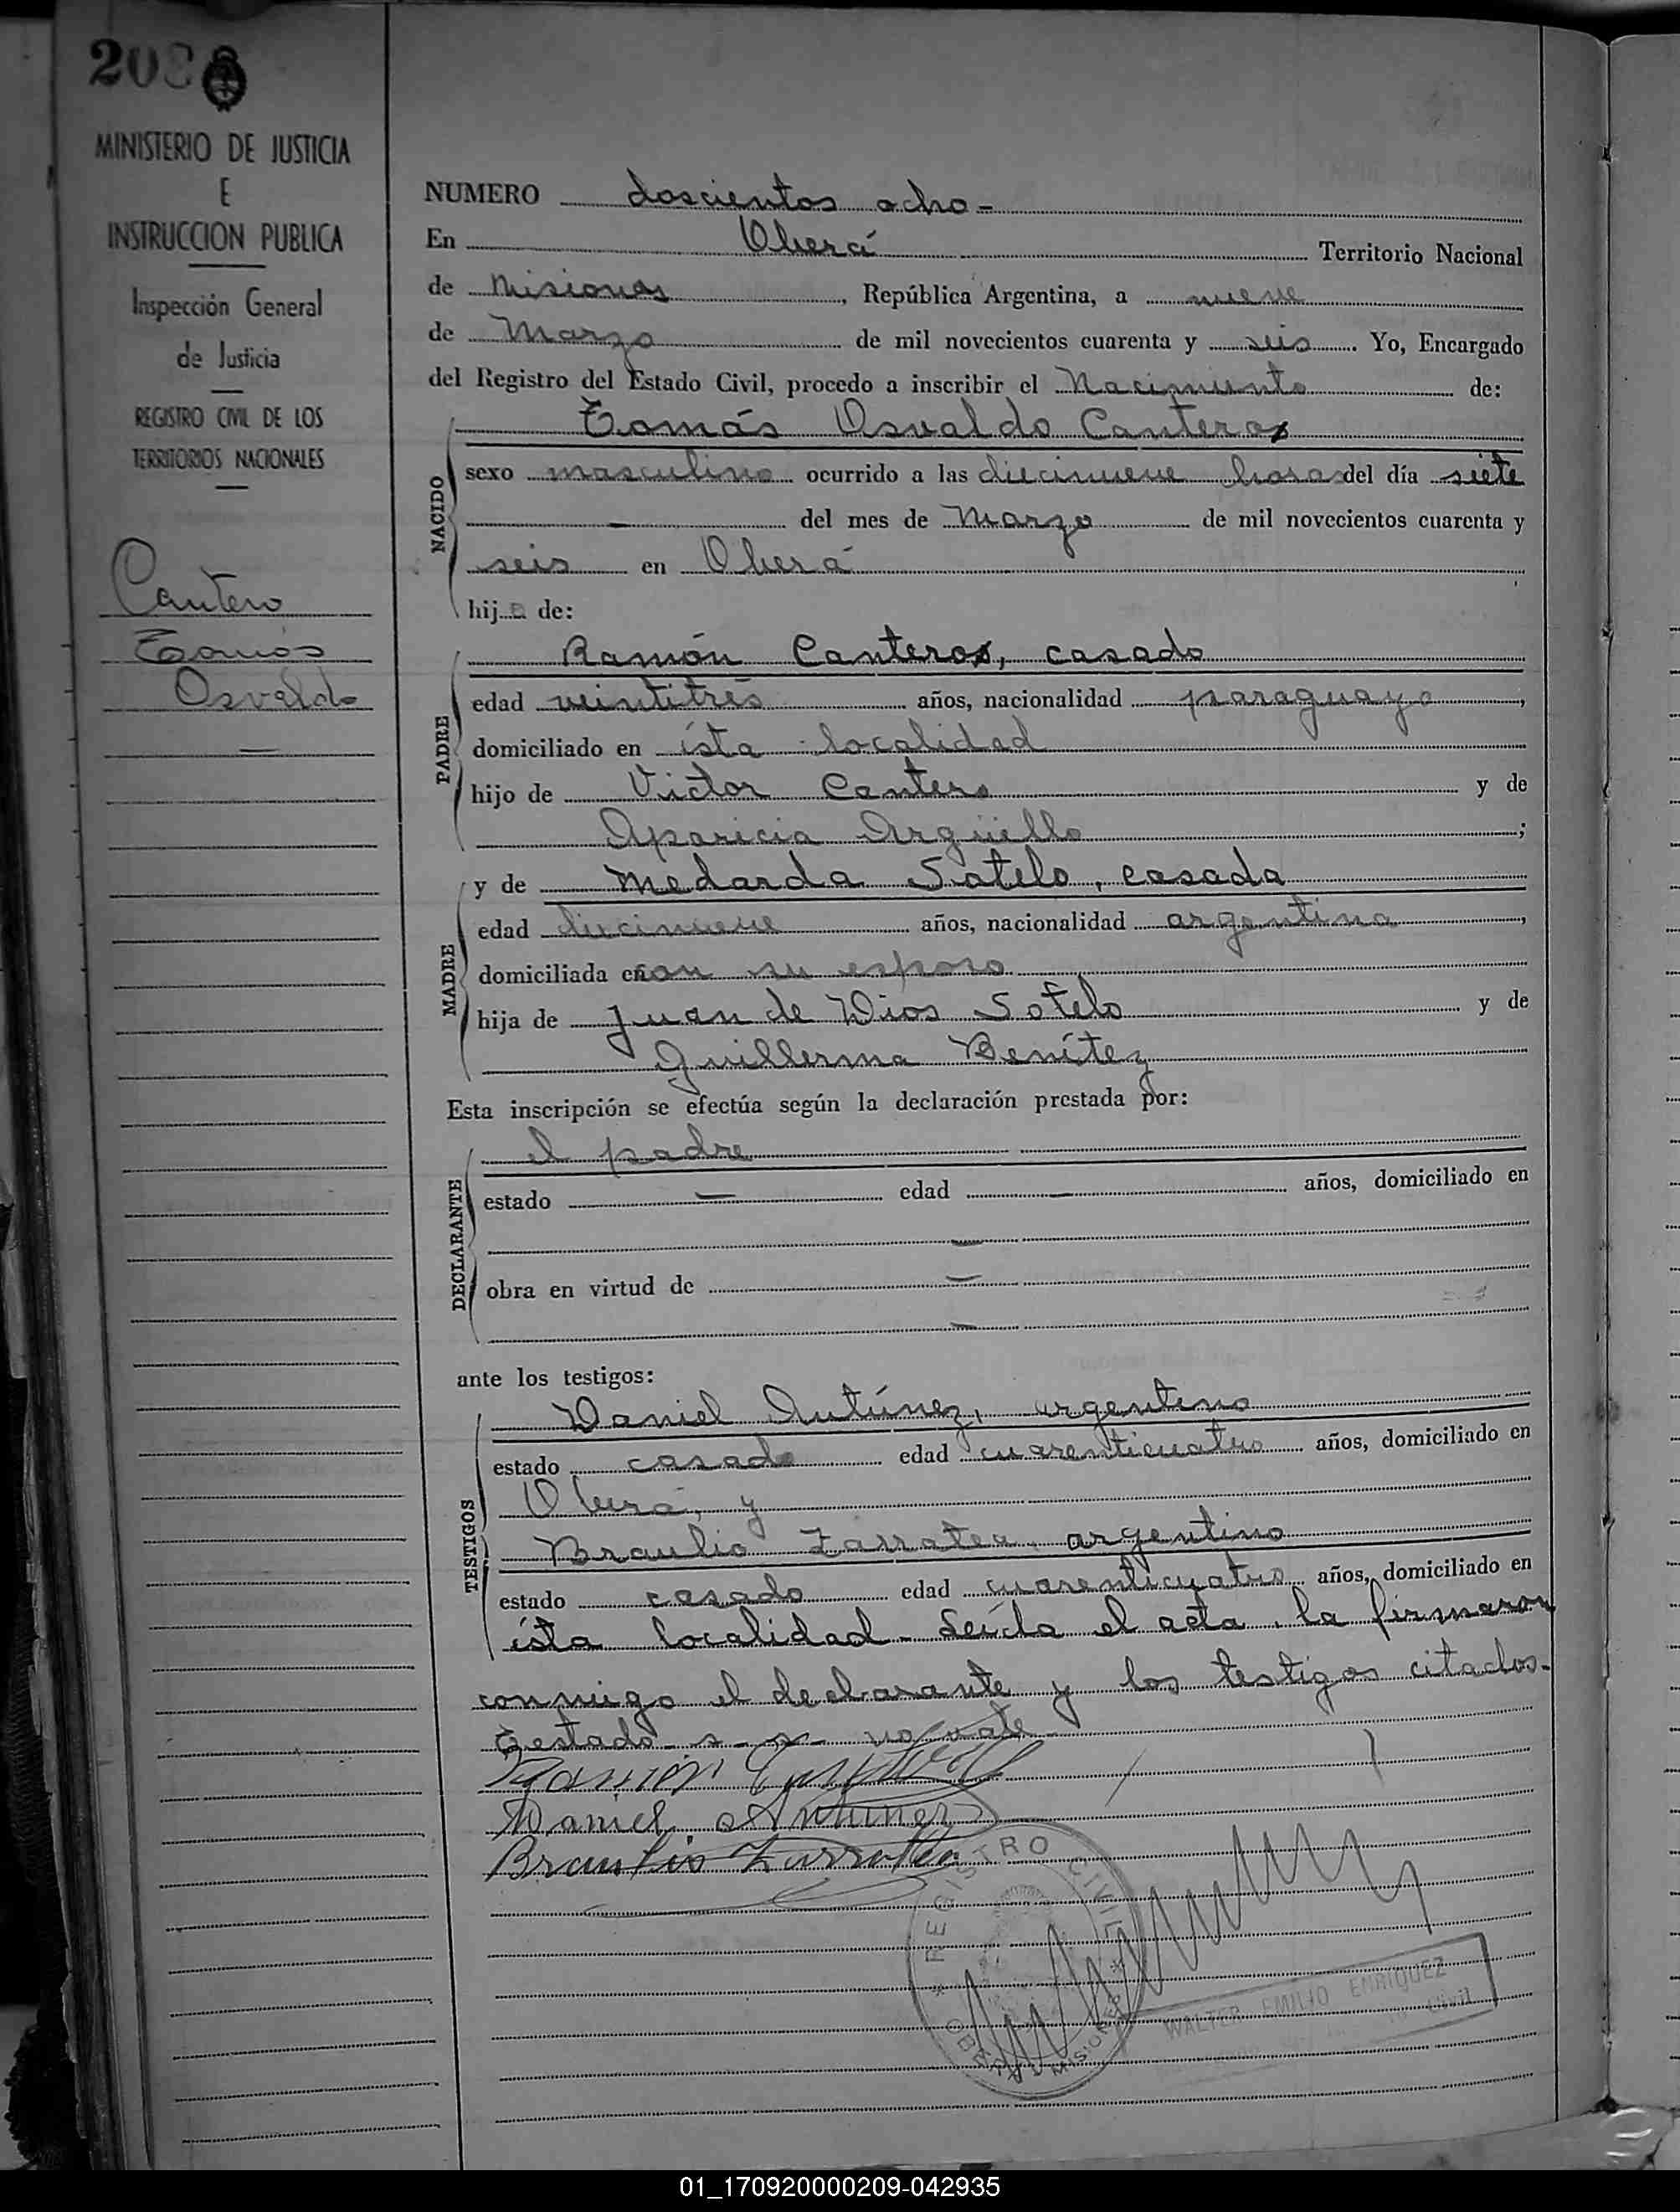 208
MINISTERIO DE JUSTICIA
E
INSTRUCCION PUBLICA
Inspección General
de Justicia
REGISTRO CIVIL DE LOS
TERRITORIOS NACIONALES
Cantero
Tomás
Osvaldo
NUMERO doscientos ocho-
En Oberá Territorio Nacional
de Misiones, República Argentina, a nueve
de Marzo de mil novecientos cuarenta y seis. Yo, Encargado
del Registro del Estado Civil, procedo a inscribir el Nacimiento de:
Tomás Osvaldo Canteros
NACIDO
sexo masculino ocurrido a las diecinueve horas del día siete
del mes de Marzo de mil novecientos cuarenta y
seis en Oberá
hijo de:
PADRE
Ramón Canteros, casado
edad veintitrés años, nacionalidad paraguayo,
domiciliado en ésta localidad
hijo de Victor Cantero y de
Aparicia Argüello;
MADRE
y de Medarda Sotelo, casada
edad diecinueve años, nacionalidad argentina,
domiciliada en con su esposo
hija de Juan de Dios Sotelo y de
Guillerma Benítez
Esta inscripción se efectúa según la declaración prestada por:
DECLARANTE
el padre
estado — edad — años, domiciliado en
—
obra en virtud de —
—
ante los testigos:
TESTIGOS
Daniel Antúnez, argentino
estado casado edad cuarenticuatro años, domiciliado en
Oberá, y
Braulio Zarratea, argentino
estado casado edad cuarenticuatro años, domiciliado en
ésta localidad- Leída el acta, la firmaron
conmigo el declarante y los testigos citados-
Testado- s- s- no vale
Ramón
Daniel Antunez
Braulio Zarratea
REGISTRO CIVIL
OBERÁ MISIONES
WALTER EMILIO ENRIQUEZ
Civil
01_170920000209-042935